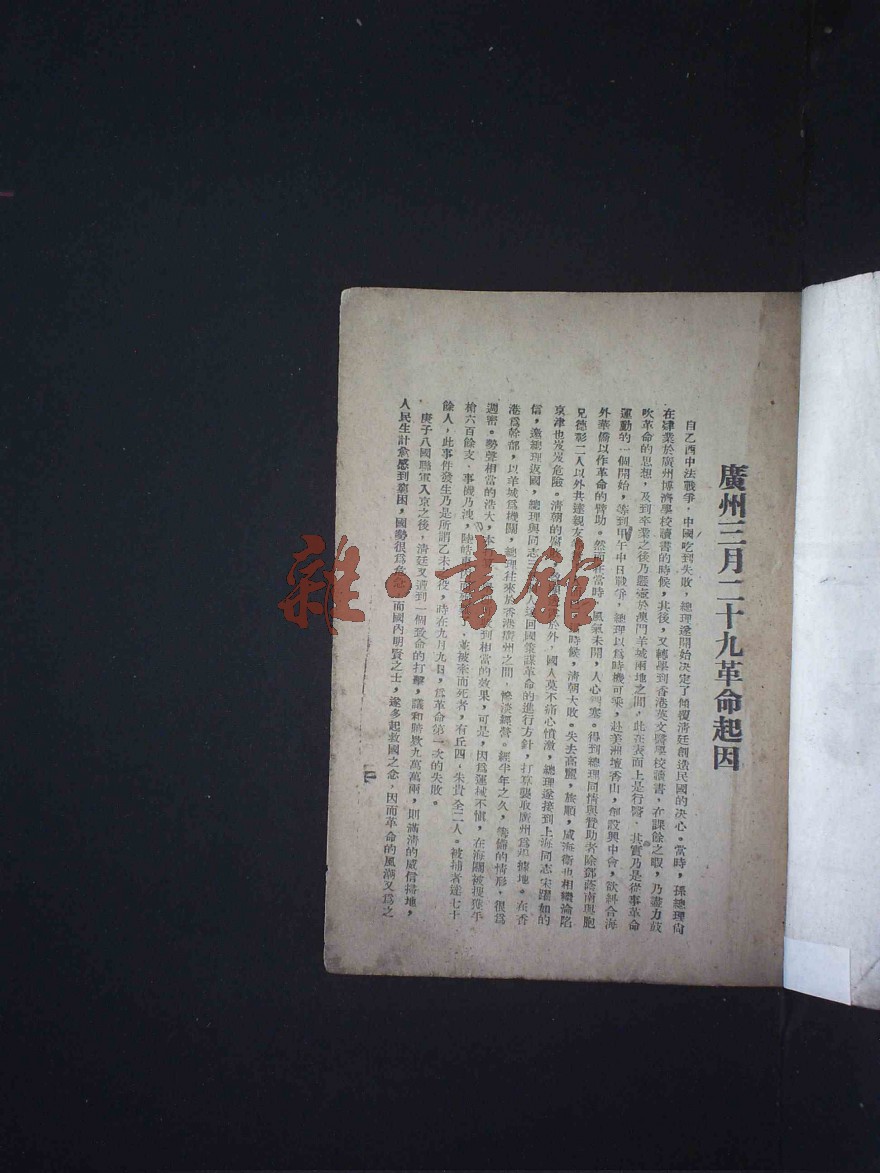 廣州三月二十九革命起因
自乙酉中法戰爭，中國吃到失敗，總理遂開始决定了傾覆清廷創造民國的决心。當時，孫總理尙
在肄業於廣州博濟學校讀書的時候，其後，又轉學到香港英文醫學校讀書，在課餘之暇，乃盡力鼓
吹革命的思想，及到卒業之後乃懸壺於澳門羊城兩地之間，此在表面上是行醫、其實乃是從事革命
運動的一個開始，等到甲午中日戰爭，總理以爲時機可乘，赴美洲壇香山，創設興中會，欲糾合海
外華僑以作革命的臂助。然而在當時，風氣未開，人心閉塞。得到總理同情與贊助者除鄧蔭南與胞
兄德彰二人以外共達親友時候，清朝大敗。失去高麗，旅順，威海衛也相繼淪陷
京津也岌岌危險。清朝的於外，國人莫不痛心憤激，總理遂接到上海同志宋躍如的
信，邀總理返國，總理與同志三回國策謀革命的進行方針，打算襲取廣州爲根據地。在香
港爲幹部，以羊城爲機關，總理往來於香港廣州之間，慘淡經營。經半年之久，籌備的情形，很爲
週密。勢聲相當的浩大，本到相當的效果，可是，因爲運械不愼，在海關被搜獲手
槍六百餘支、事機乃洩，陸皓東、並被牽而死者，有丘四、朱貴全二人。被捕者達七十
餘人，此事件發生乃是所謂乙未之役，時在九月九日，爲革命第一次的失敗。
庚子八國聯軍入京之後，清廷又遭到一個致命的打擊，議和賠款九萬萬兩，則滿清的威信掃地，
人民生計愈感到窮困，國勢很爲危急，而國內明賢之士，遂多起救國之念，因而革命的風潮又爲之
雜·書館